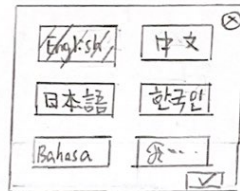 English
中文
日本語
한국인
Bahasa